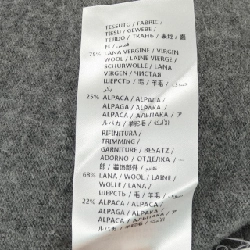 TESSUTO / FABRIC /
TISSU / GEWEBE /
TEJIDO / ТКАНЬ /
75% LANA VERGINE / VIRGIN
WOOL / LAINE VIERGE /
SCHURWOLLE / LANA
VIRGEN / ЧИСТАЯ
ШЕРСТЬ /
25% ALPACA / ALPACA /
ALPAGA / ALPAKA /
ALPACA / АЛЬПАКА / ア
ルパカ /
RIFINITURA /
TRIMMING /
GARNITURE / BESATZ /
ADORNO / ОТДЕЛКА /
部 /
68% LANA / WOOL / LAINE /
WOLLE / LANA /
ШЕРСТЬ / 毛 /
22% ALPACA / ALPACA /
ALPAGA / ALPAKA /
ALPACA / АЛЬПАКА / ア
ルパカ /